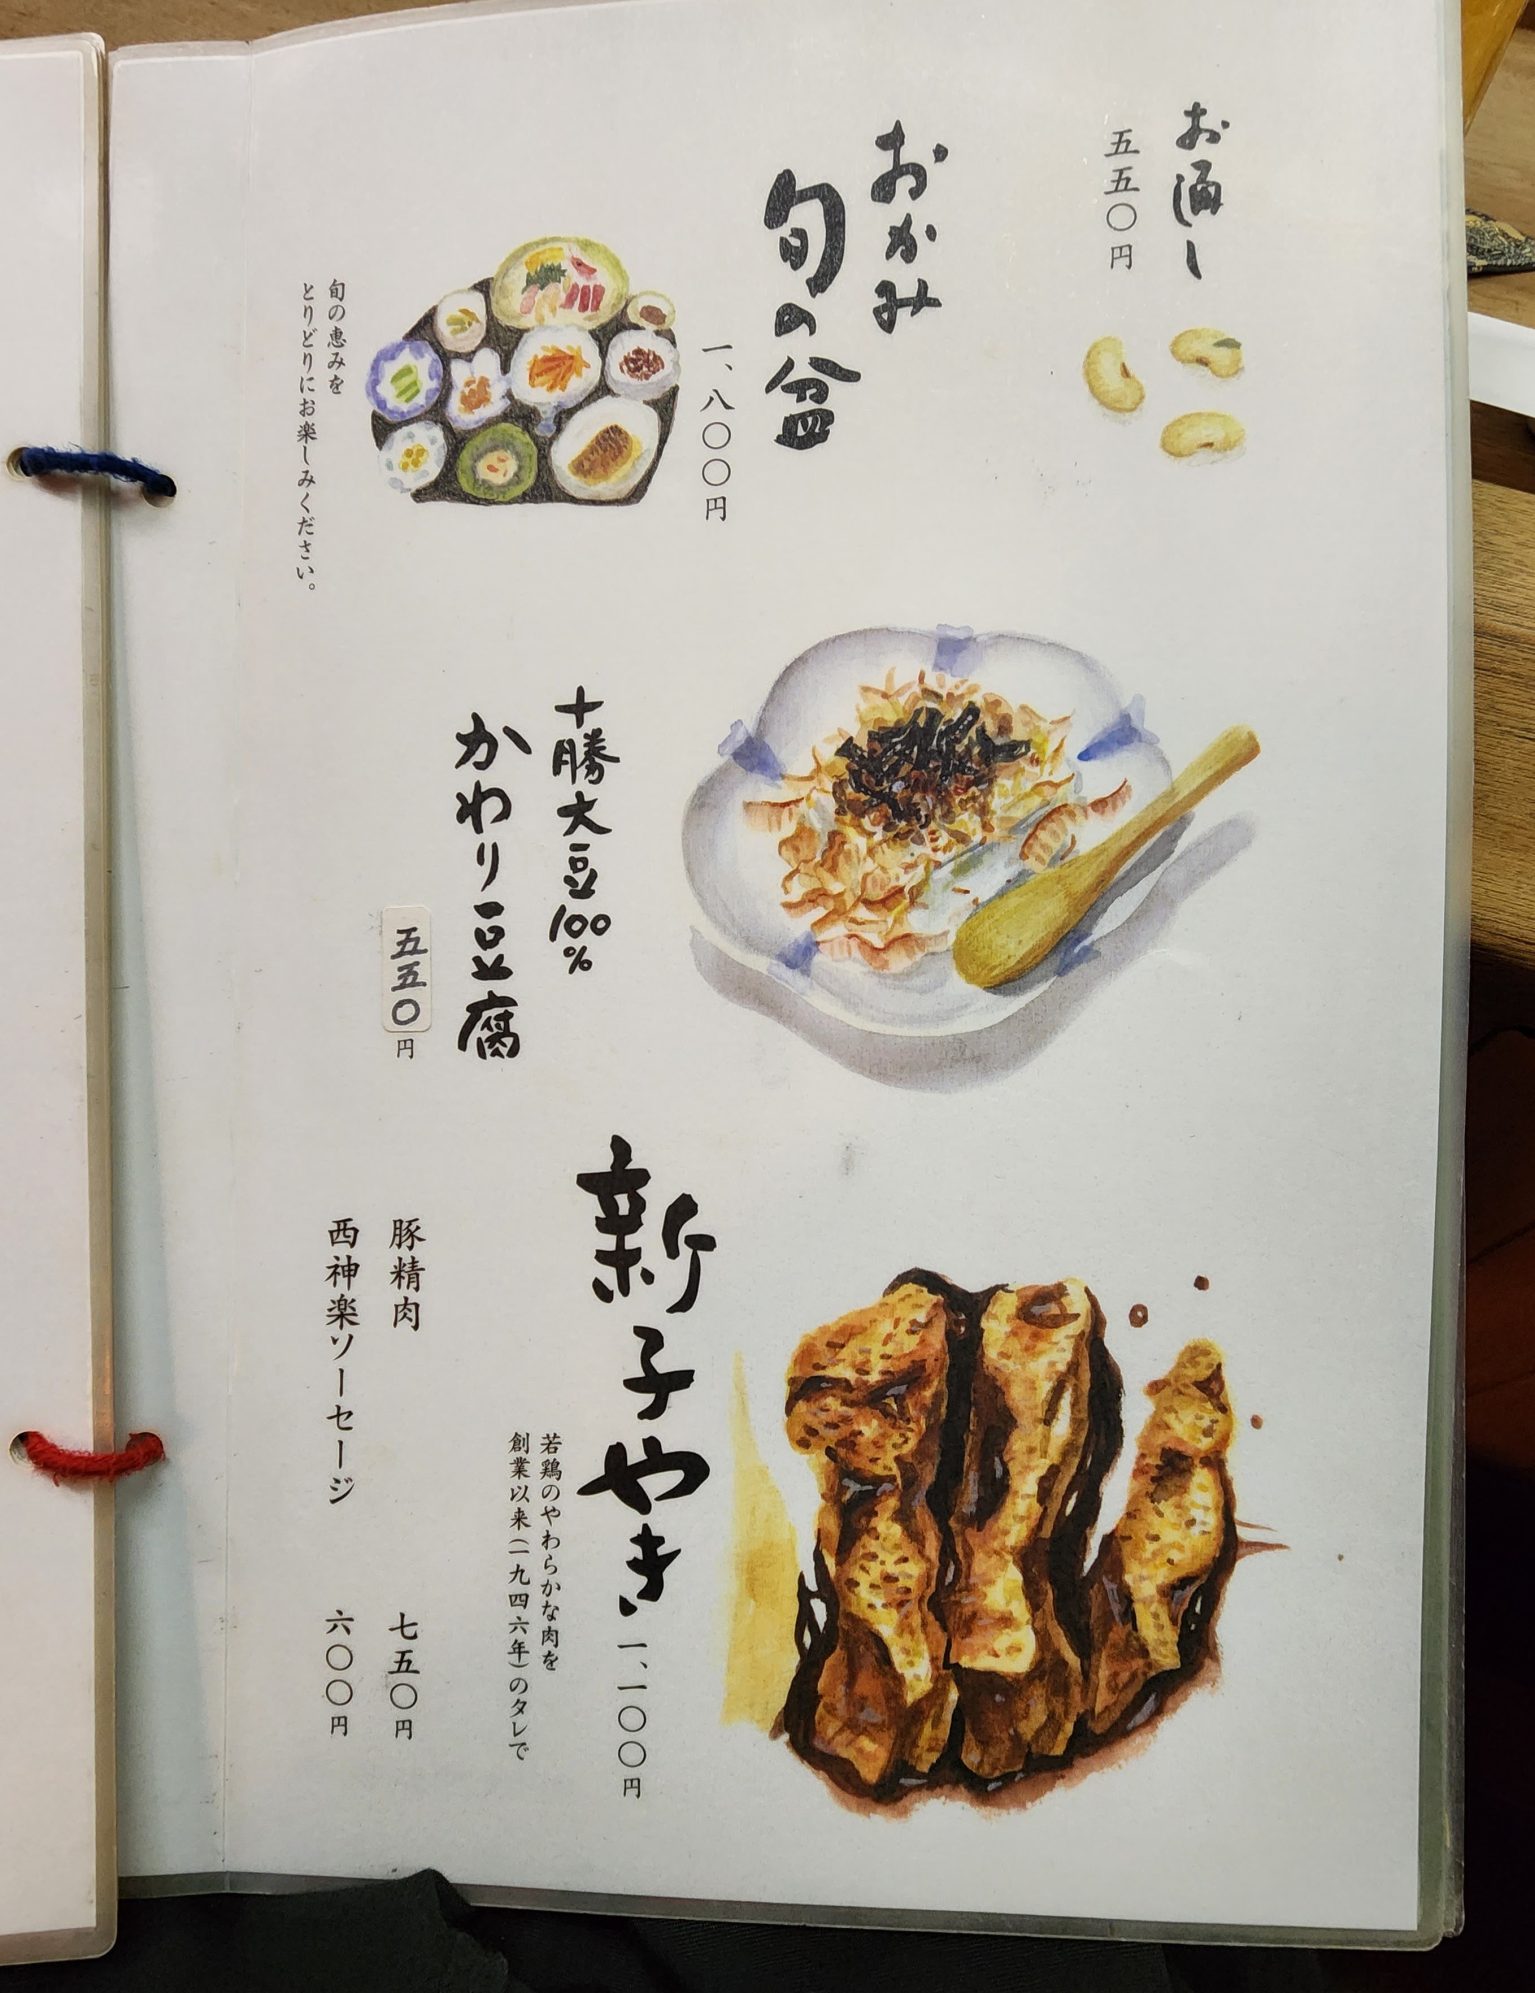 お通し
五五〇円
おかみ
旬の盆
一、八〇〇円
旬の恵みを
とりどりにお楽しみください。
十勝大豆100%
かわり豆腐
五五〇円
新子やき
一、一〇〇円
若鶏のやわらかな肉を
創業以来(一九四六年)のタレで
豚精肉 七五〇円
西神楽ソーセージ 六〇〇円